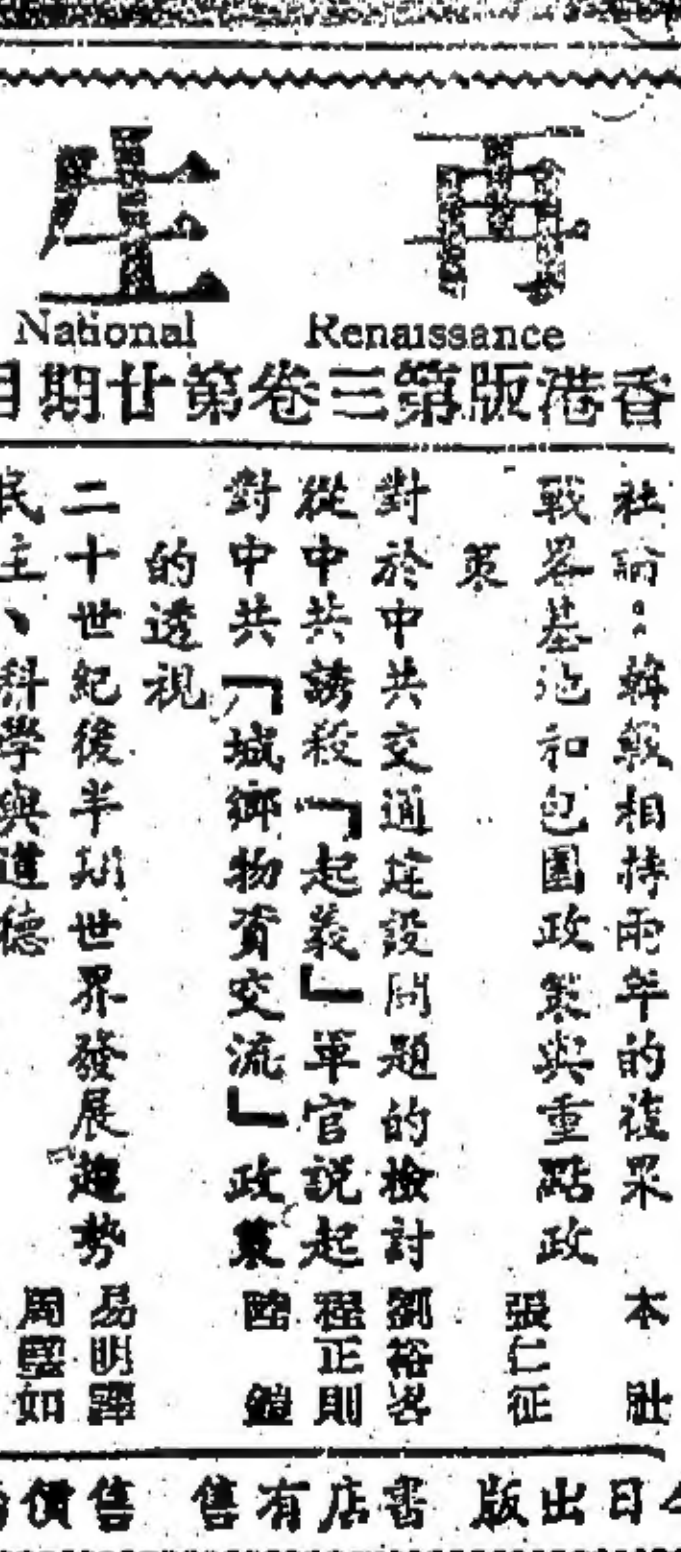 再生
National Renaissance
香港版第三卷第廿期目
社論：韓戰相持兩年的後果 本社
戰略基地和包圍政策與重點政策 張仁征
對於中共交通建設問題的檢討 劉裕
從中共誘殺「起義」軍官説起 程正則
對中共「城鄉物資交流」政策的透視 陸
二十世紀後半期世界發展趨勢 易明
民主、科學與道德 周如
今日出版 書店有售 售價